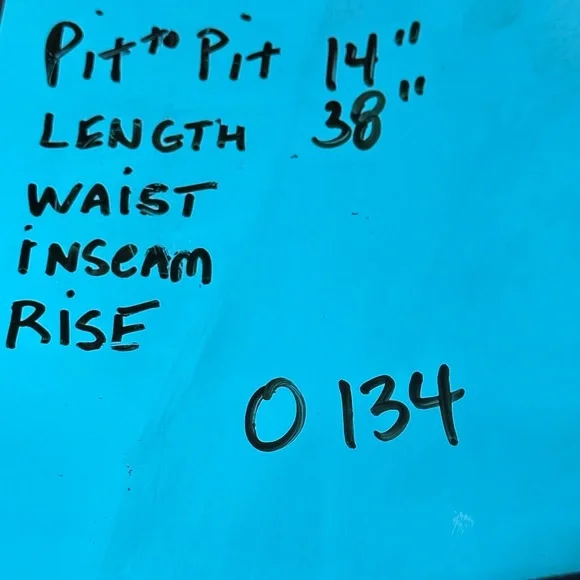 Pit to Pit 14"
LENGTH 38"
WAiST
iNSEAM
RiSE
O 134